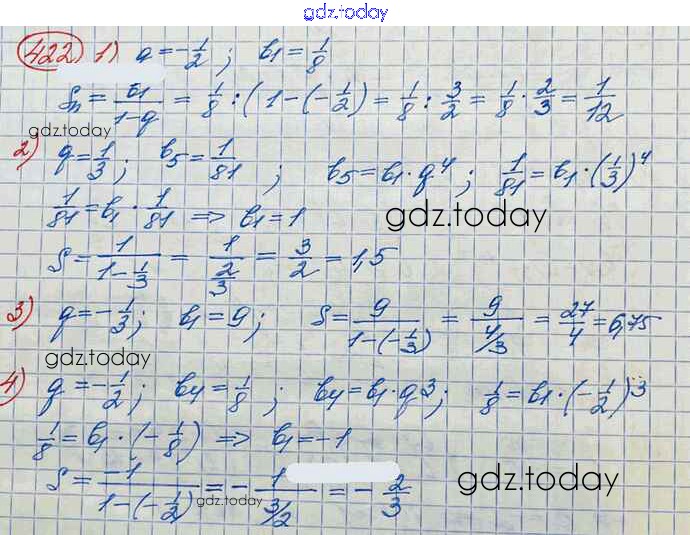 gdz.today
422) 1) q = -1/2 ; b1 = 1/8
Sn = b1/(1-q) = 1/8 : (1-(-1/2) = 1/8 : 3/2 = 1/8 · 2/3 = 1/12
gdz.today
2) q = 1/3 ; b5 = 1/81 ; b5 = b1 · q⁴ ; 1/81 = b1 · (1/3)⁴
1/81 = b1 · 1/81 => b1 = 1
gdz.today
S = 1/(1-1/3) = 1/(2/3) = 3/2 = 1,5
3) q = -1/3 ; b1 = 9 ; S = 9/(1-(-1/3)) = 9/(4/3) = 27/4 = 6,75
gdz.today
4) q = -1/2 ; b4 = 1/8 ; b4 = b1 · q³ ; 1/8 = b1 · (-1/2)³
1/8 = b1 · (-1/8) => b1 = -1
S = -1/(1-(-1/2)) = - 1/(3/2) = - 2/3
gdz.today
gdz.today